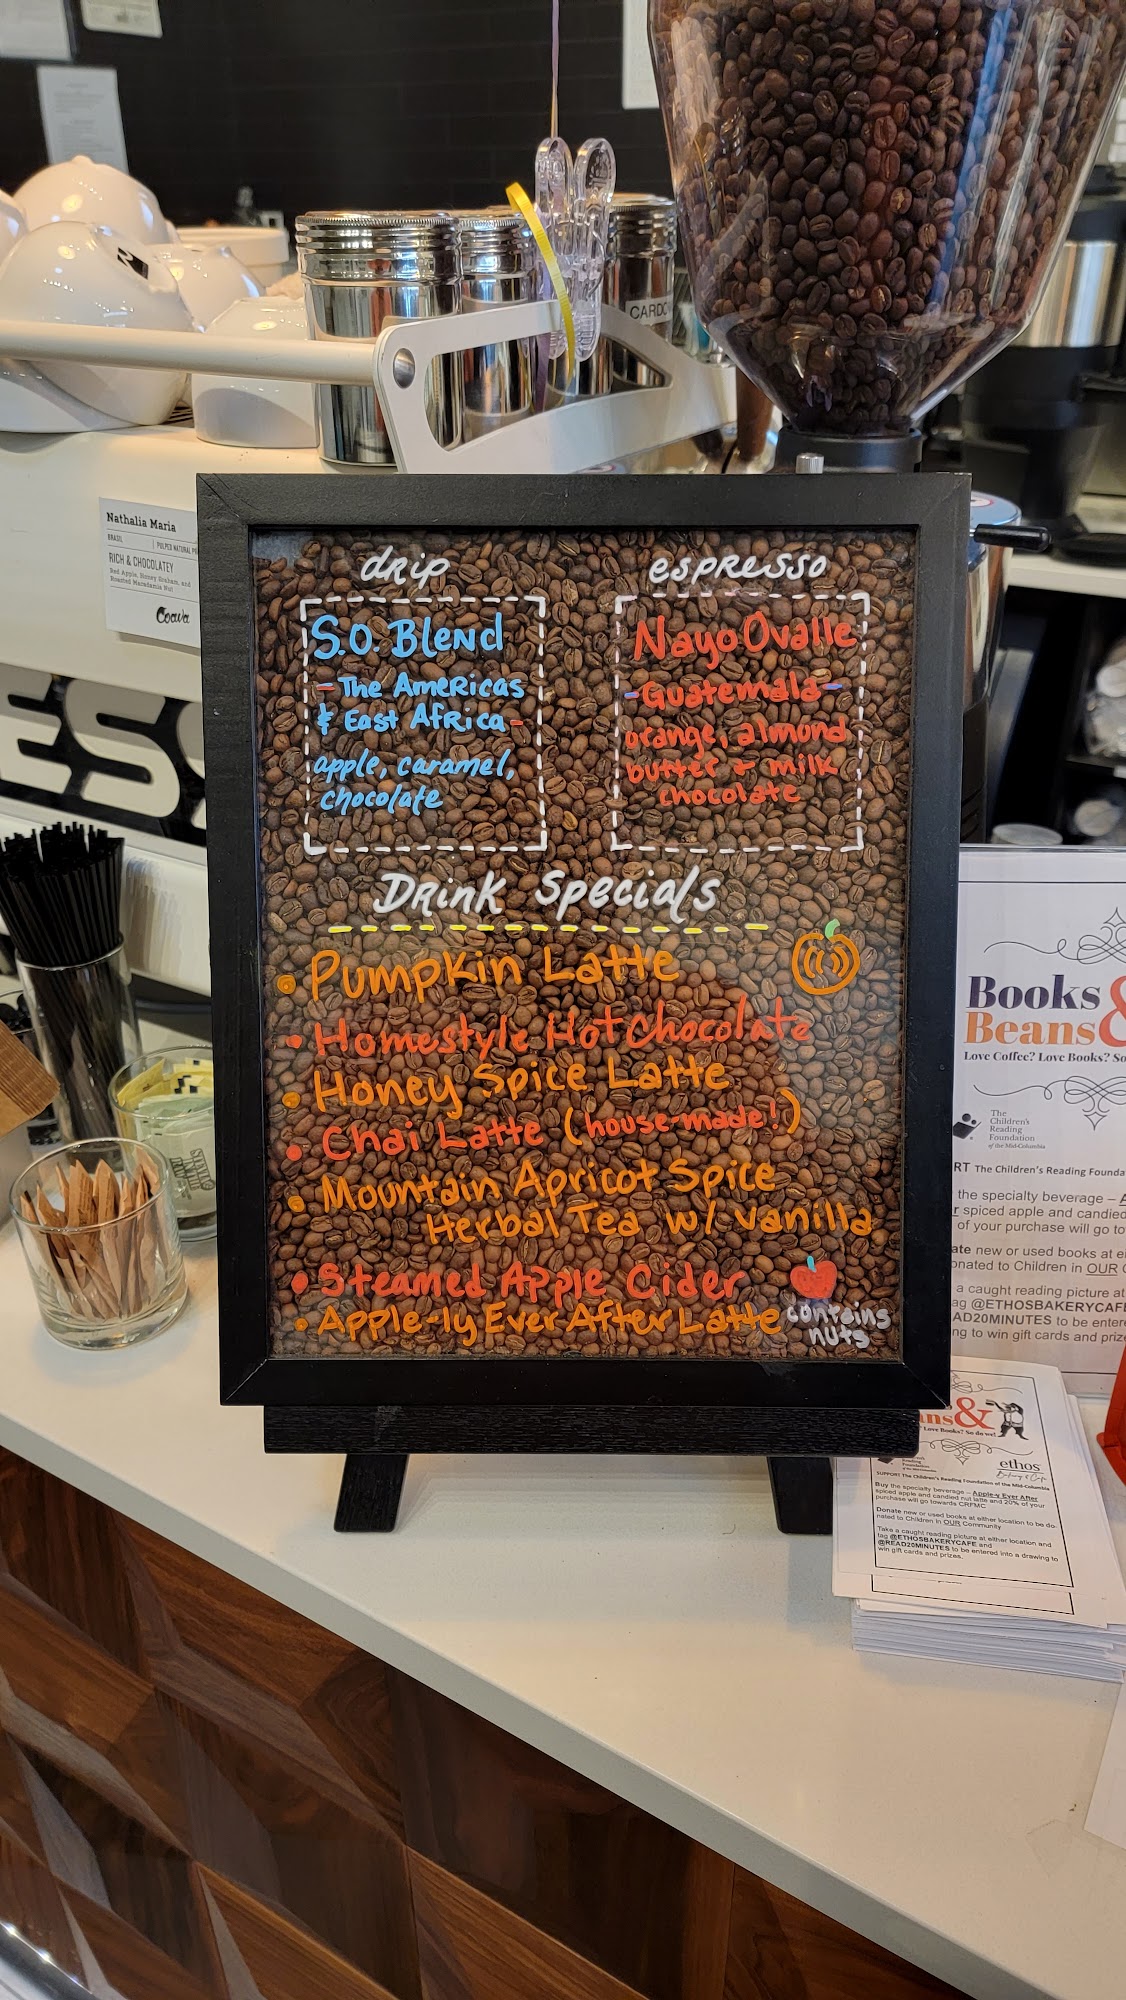 CARDO
Nathalia Maria
BRASIL
PULPED NATURAL PR
RICH & CHOCOLATEY
Red Apple, Honey Graham, and
Roasted Macadamia Nut
Coava
ESS
drip
S.O. Blend
- The Americas
& East Africa -
apple, caramel,
chocolate
espresso
Nayo Ovalle
- Guatemala -
orange, almond
butter + milk
chocolate
Drink Specials
• Pumpkin Latte
• Homestyle Hot Chocolate
• Honey Spice Latte
• Chai Latte (house-made!)
• Mountain Apricot Spice
Herbal Tea w/ vanilla
• Steamed Apple Cider
• Apple-ly Ever After Latte
contains
nuts
Books &
Beans
Love Coffee? Love Books? So
The
Children's
Reading
Foundation
of the Mid-Columbia
RT The Children's Reading Founda
the specialty beverage – A
r spiced apple and candied
of your purchase will go to
ate new or used books at e
onated to Children in OUR C
a caught reading picture at
ag @ETHOSBAKERYCAFE
AD20MINUTES to be entere
ng to win gift cards and prize
ans&
Love Books? So do we!
Reading
Foundation
of the Mid-Columbia
ethos
Bakery & Cafe
SUPPORT The Children's Reading Foundation of the Mid-Columbia
Buy the specialty beverage – Apple-y Ever After
spiced apple and candied nut latte and 20% of your
purchase will go towards CRFMC
Donate new or used books at either location to be do-
nated to Children in OUR Community
Take a caught reading picture at either location and
tag @ETHOSBAKERYCAFE and
@READ20MINUTES to be entered into a drawing to
win gift cards and prizes.